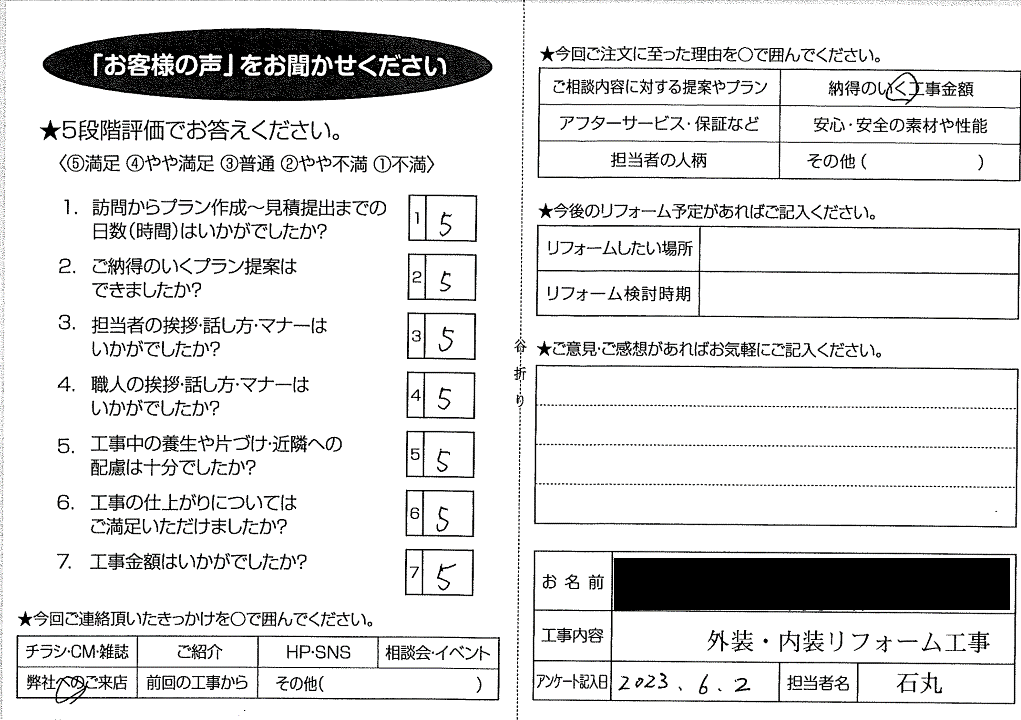 「お客様の声」をお聞かせください
★5段階評価でお答えください。
〈⑤満足 ④やや満足 ③普通 ②やや不満 ①不満〉
1. 訪問からプラン作成～見積提出までの
日数(時間)はいかがでしたか?
1 5
2. ご納得のいくプラン提案は
できましたか?
2 5
3. 担当者の挨拶・話し方・マナーは
いかがでしたか?
3 5
4. 職人の挨拶・話し方・マナーは
いかがでしたか?
4 5
5. 工事中の養生や片づけ・近隣への
配慮は十分でしたか?
5 5
6. 工事の仕上がりについては
ご満足いただけましたか?
6 5
7. 工事金額はいかがでしたか?
7 5
★今回ご連絡頂いたきっかけを○で囲んでください。
チラシ・CM・雑誌 ご紹介 HP・SNS 相談会・イベント
弊社へのご来店 前回の工事から その他( )
谷折り
★今回ご注文に至った理由を○で囲んでください。
ご相談内容に対する提案やプラン 納得のいく工事金額
アフターサービス・保証など 安心・安全の素材や性能
担当者の人柄 その他( )
★今後のリフォーム予定があればご記入ください。
リフォームしたい場所
リフォーム検討時期
★ご意見・ご感想があればお気軽にご記入ください。
お名前
工事内容 外装・内装リフォーム工事
アンケート記入日 2023.6.2 担当者名 石丸